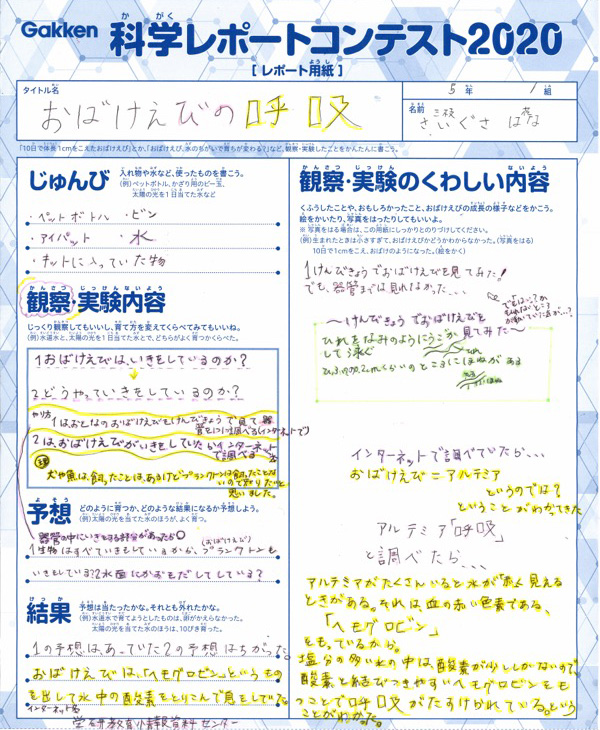 Gakken 科学レポートコンテスト2020
[ レポート用紙 ]
タイトル名
おばけえびの呼吸
5年 1組
名前 さいぐさ はな
「10日で体長1cmをこえたおばけえび」とか、「おばけえび、水のちがいで育ちが変わる?」など、観察・実験したことをかんたんに書こう。
じゅんび
入れ物や水など、使ったものを書こう。
(例)ペットボトル、かざり用のビー玉、
太陽の光を1日当てた水など
・ペットボトル ・ビン
・アイパット ・水
・キットに入っていた物
観察・実験内容
じっくり観察してもいいし、育て方を変えてくらべてみてもいいね。
(例)水道水と、太陽の光を1日当てた水とで、どちらがよく育つかくらべた。
1おばけえびは、いきをしているのか?
2どうやっていきをしているのか?
やり方
1はおとなのおばけえびをけんびきょうで見て、器
2はおばけえびがいきをしていたらインターネット
で調べる
犬や魚は、飼ったことは、あるけどプランクトンは飼ったことな
いので知りたいと
思いました。
予想
どのように育つか、どのような結果になるか予想しよう。
(例)太陽の光を当てた水のほうが、よく育つ。
器管の中にいきをする部分があったら○
(おばけえび)
1生物はすべていきをしているから、プランクトンも
いきをしている?2水面にかおをだしてしている?
結果
予想は当たったかな。それとも外れたかな。
(例)水道水で育てようとしたものは、卵がかえらなかった。
太陽の光を当てた水のほうは、10ぴき育った。
1の予想はあっていた2の予想はちがった。
おばけえびは、「ヘモグロビン」というもの
を出して水中の酸素をとりこんで息をしていた。
インターネット名
学研教育情報資料センター
観察・実験のくわしい内容
くふうしたことや、おもしろかったこと、おばけえびの成長の様子などをかこう。
絵をかいたり、写真をはったりしてもいいよ。
※ 写真をはる場合は、この用紙にしっかりとのりづけしてください。
(例)生まれたときは小さすぎて、おばけえびかどうかわからなかった。(写真をはる)
10日で1cmをこえて、おばけのようになった。(絵をかく)
1けんびきょうでおばけえびを見てみた!
でも、器管までは見れなかった...
〜けんびきょうでおばけえびを
見てみた〜
ひれをなみのようにうごか
して泳ぐ
インターネットで調べていたら...
おばけえび=アルテミア
というのでは?
ということがわかってきた
アルテミア「呼吸」
と調べたら...
アルテミアがたくさんいると水が「赤く見える
ときがある。それは血の赤い色素である、
「ヘモグロビン」
をもっているから。
塩分の多い水の中は酸素が少ししかないので
酸素と結びつきやすいヘモグロビンをも
つことで呼吸がたすけかれている。とい
うことがわかった。